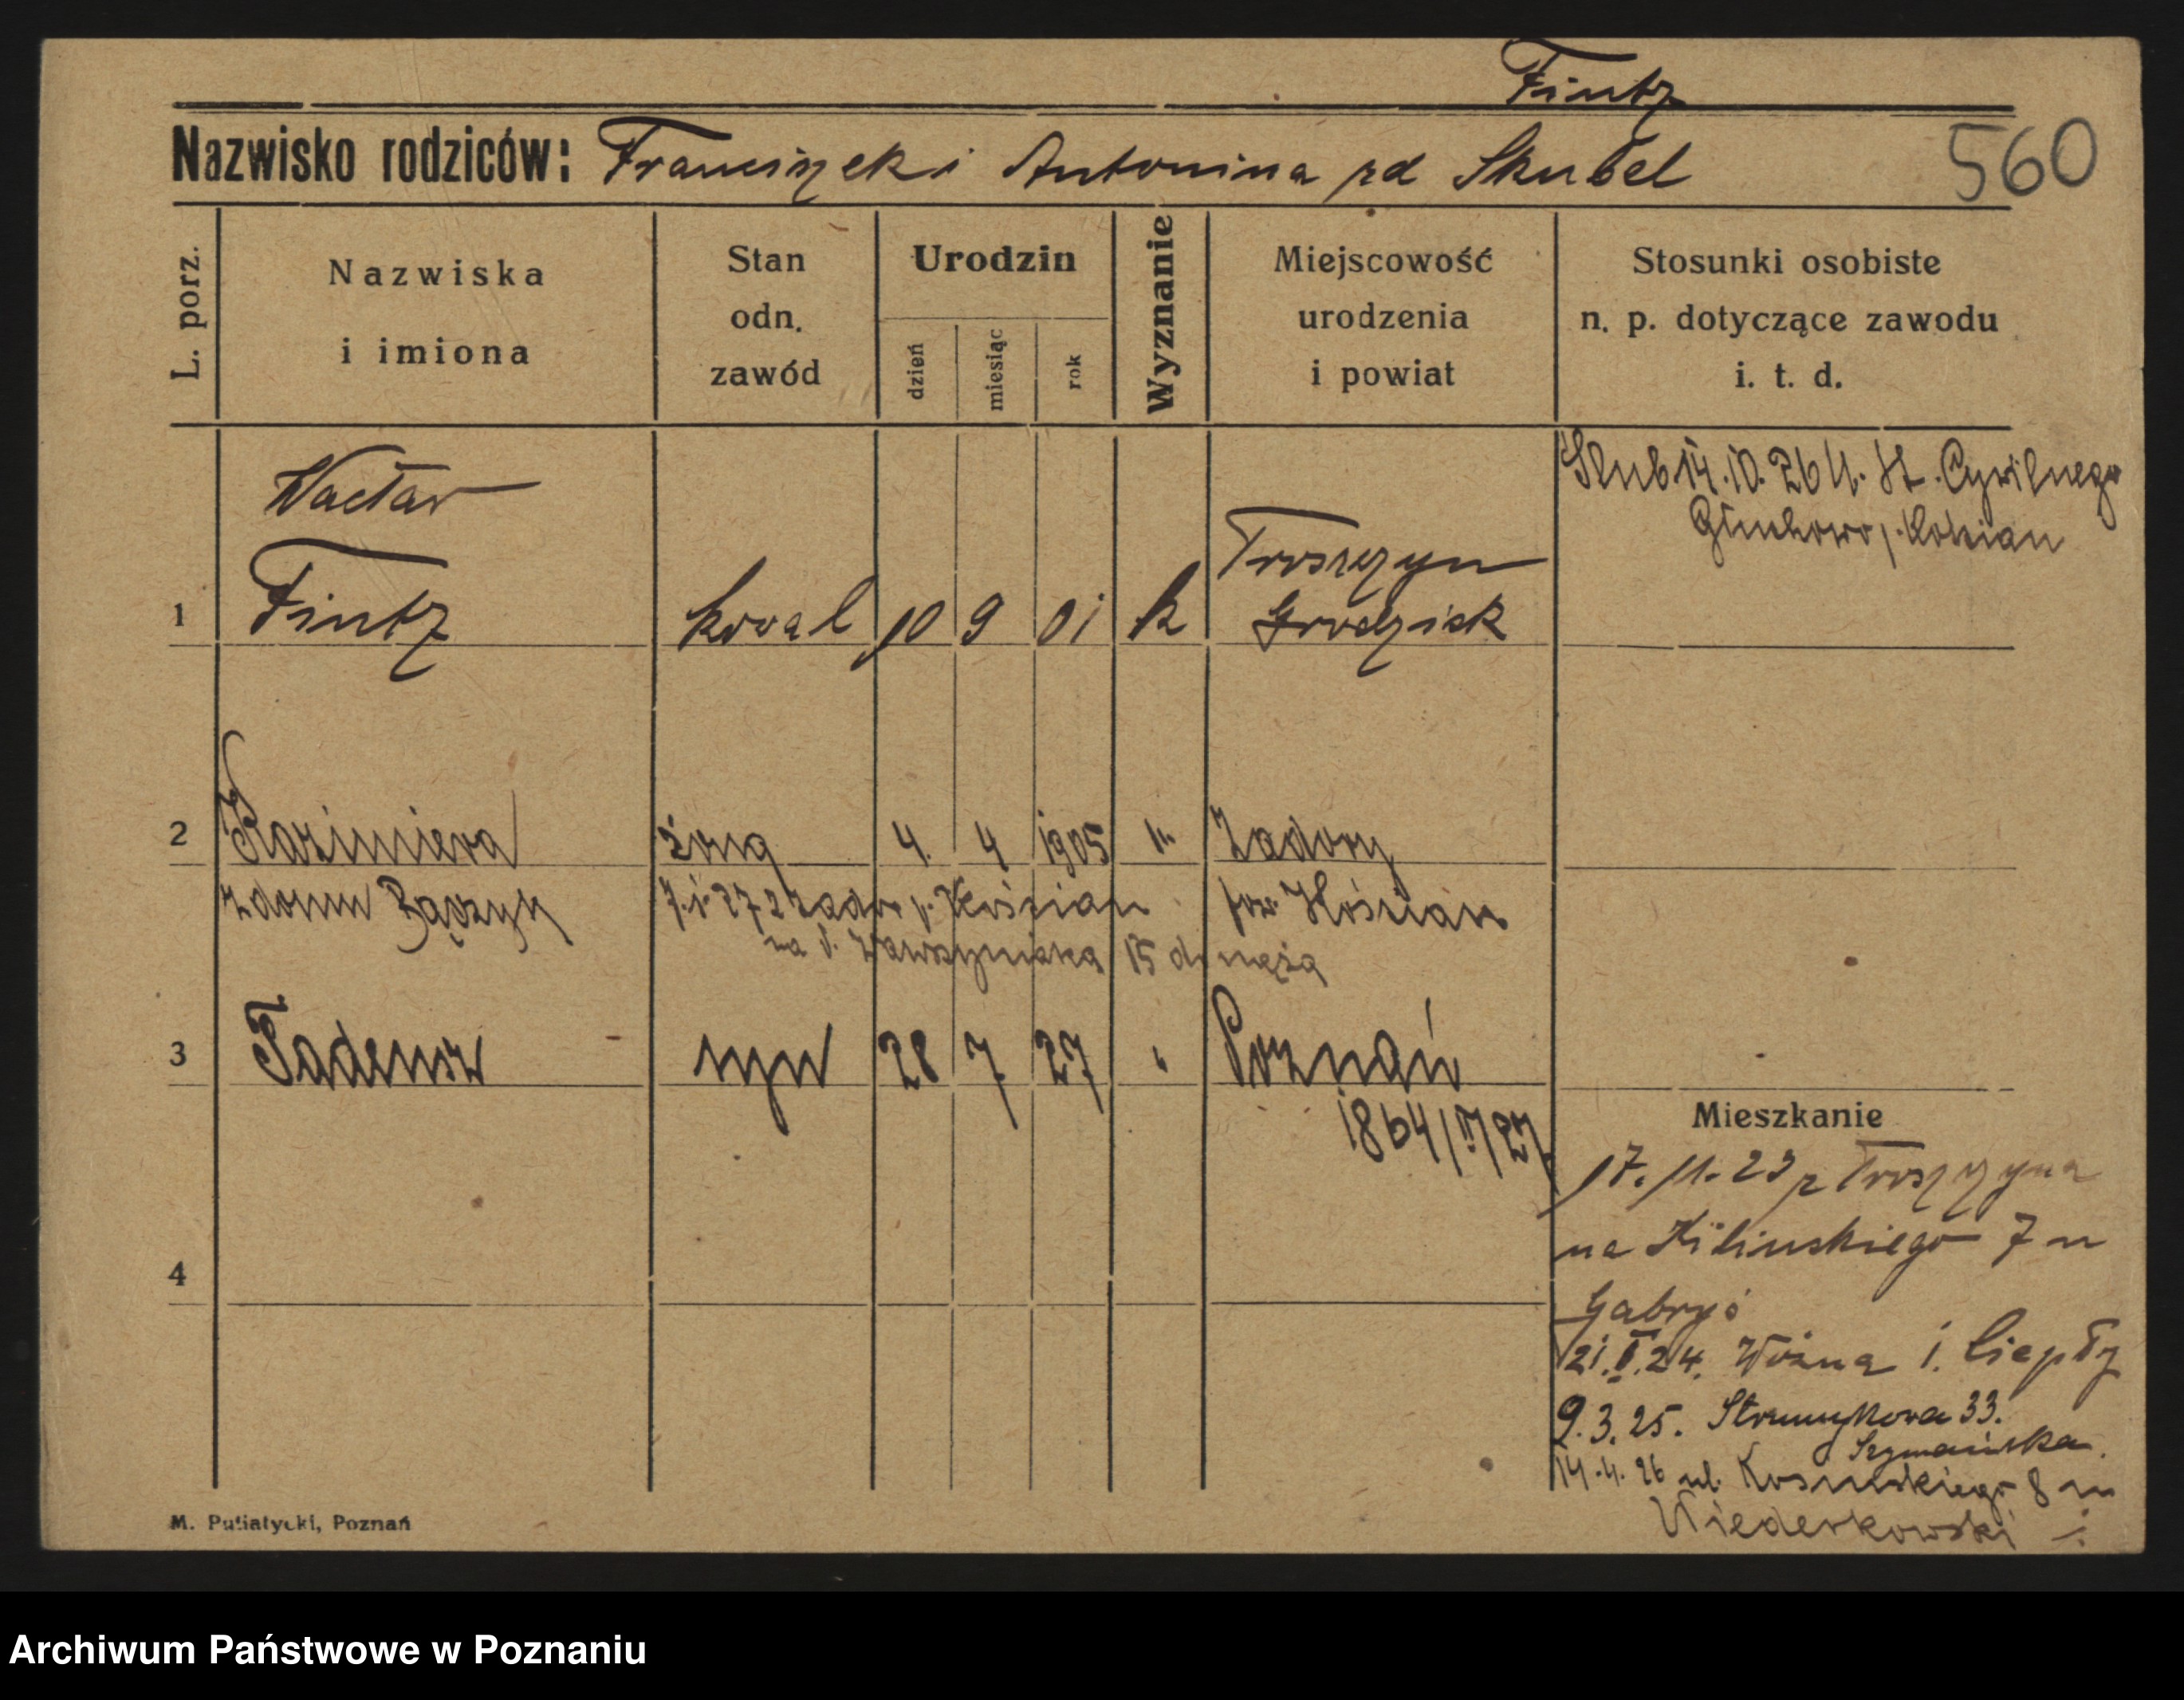 Fintz
Nazwisko rodziców: Franciszek i Antonina zd Skubel
560
L. porz.
Nazwiska
i imiona
Stan
odn.
zawód
Urodzin
dzień
miesiąc
rok
Wyznanie
Miejscowość
urodzenia
i powiat
Stosunki osobiste
n. p. dotyczące zawodu
i. t. d.
Wacław
1 Fintz kowal 10 9 01 k Troszczyn
Grodzisk
Ślub 14.10.26 U. St. Cywilnego
Głuchowo p. Kościan
2 Kazimiera żona 4. 4 1905 k. Zadory
z domu pow. Kościan
7.1.27 z Zador p. Kościan
na Wawrzyniaka 15 do męża
3 Tadeusz syn 28 7 27 " Poznań
1864/7/27
4
Mieszkanie
17.11.23 z Troszczyna
na Kilinskiego 7 u
Gabryś
21. 24. Woźna 1. Ciepły
9.3.25. Strumykowa 33.
Szymańska.
14.4.26 ul. 8 m
Niederkowski
M. Putiatycki, Poznań
Archiwum Państwowe w Poznaniu